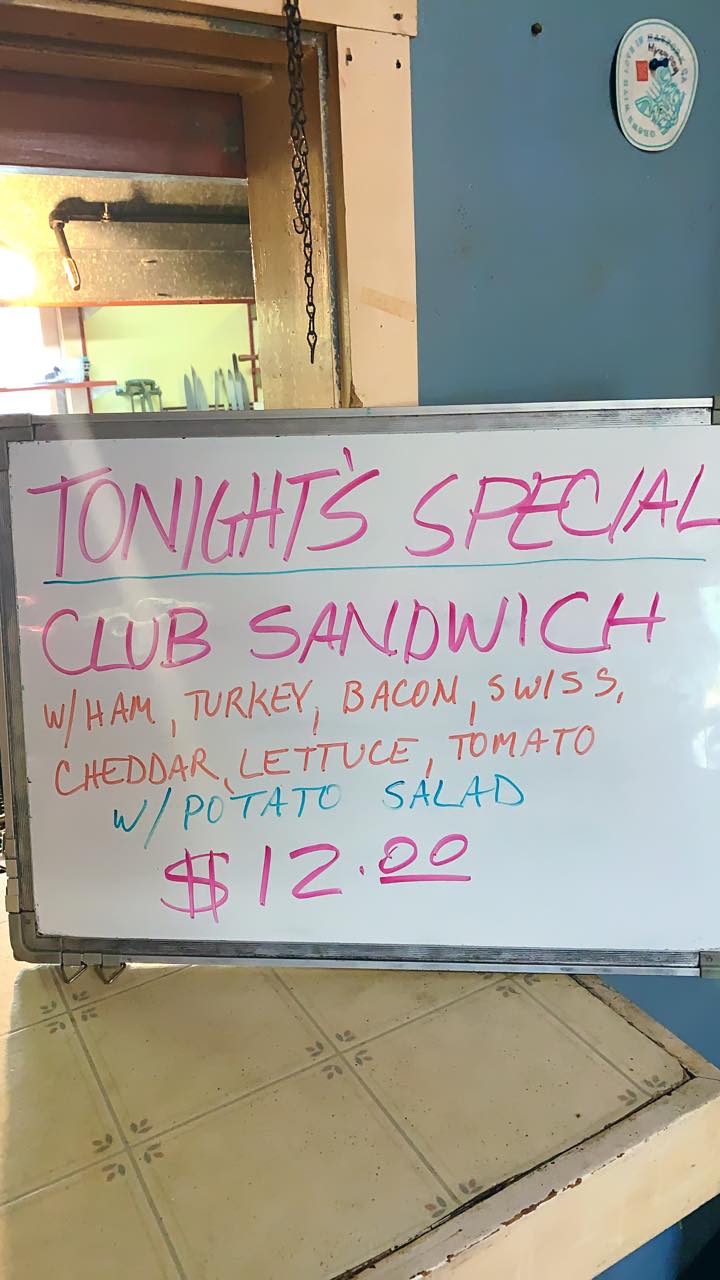 TONIGHT'S SPECIAL
CLUB SANDWICH
W/HAM, TURKEY, BACON, SWISS,
CHEDDAR, LETTUCE, TOMATO
W/POTATO SALAD
$12.00